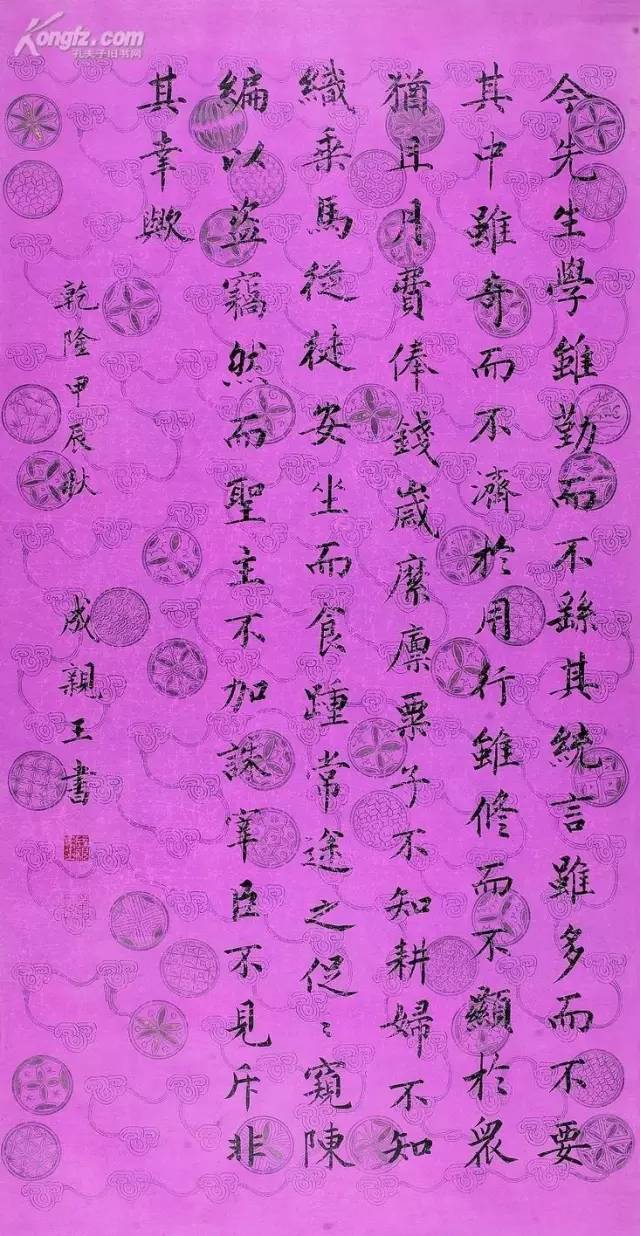 今先生學雖勤而不繇其統言雖多而不要
其中雖奇而不濟於用行雖修而不顯於衆
猶且月費俸錢歲縻廩粟子不知耕婦不知
織乘馬從徒安坐而食踵常途之促〻窺陳
編以盜竊然而聖主不加誅宰臣不見斥非
其幸歟
乾隆甲辰秋 成親王書
Kongfz.com
孔夫子旧书网